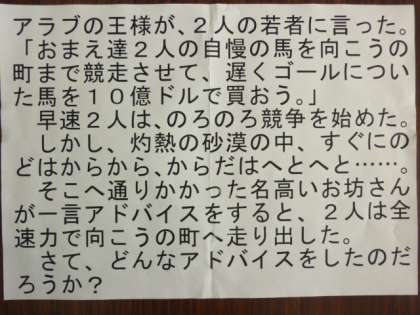 アラブの王様が、２人の若者に言った。
「おまえ達２人の自慢の馬を向こうの
町まで競走させて、遅くゴールについ
た馬を１０億ドルで買おう。」
　早速２人は、のろのろ競争を始めた。
　しかし、灼熱の砂漠の中、すぐにの
どはからから、からだはへとへと……。
　そこへ通りかかった名高いお坊さん
が一言アドバイスをすると、２人は全
速力で向こうの町へ走り出した。
　さて、どんなアドバイスをしたのだ
ろうか？